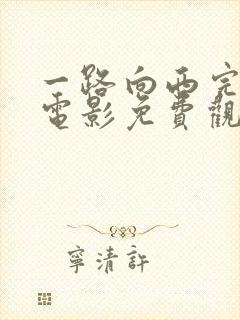 一路向西完
電影免費觀
寧清許